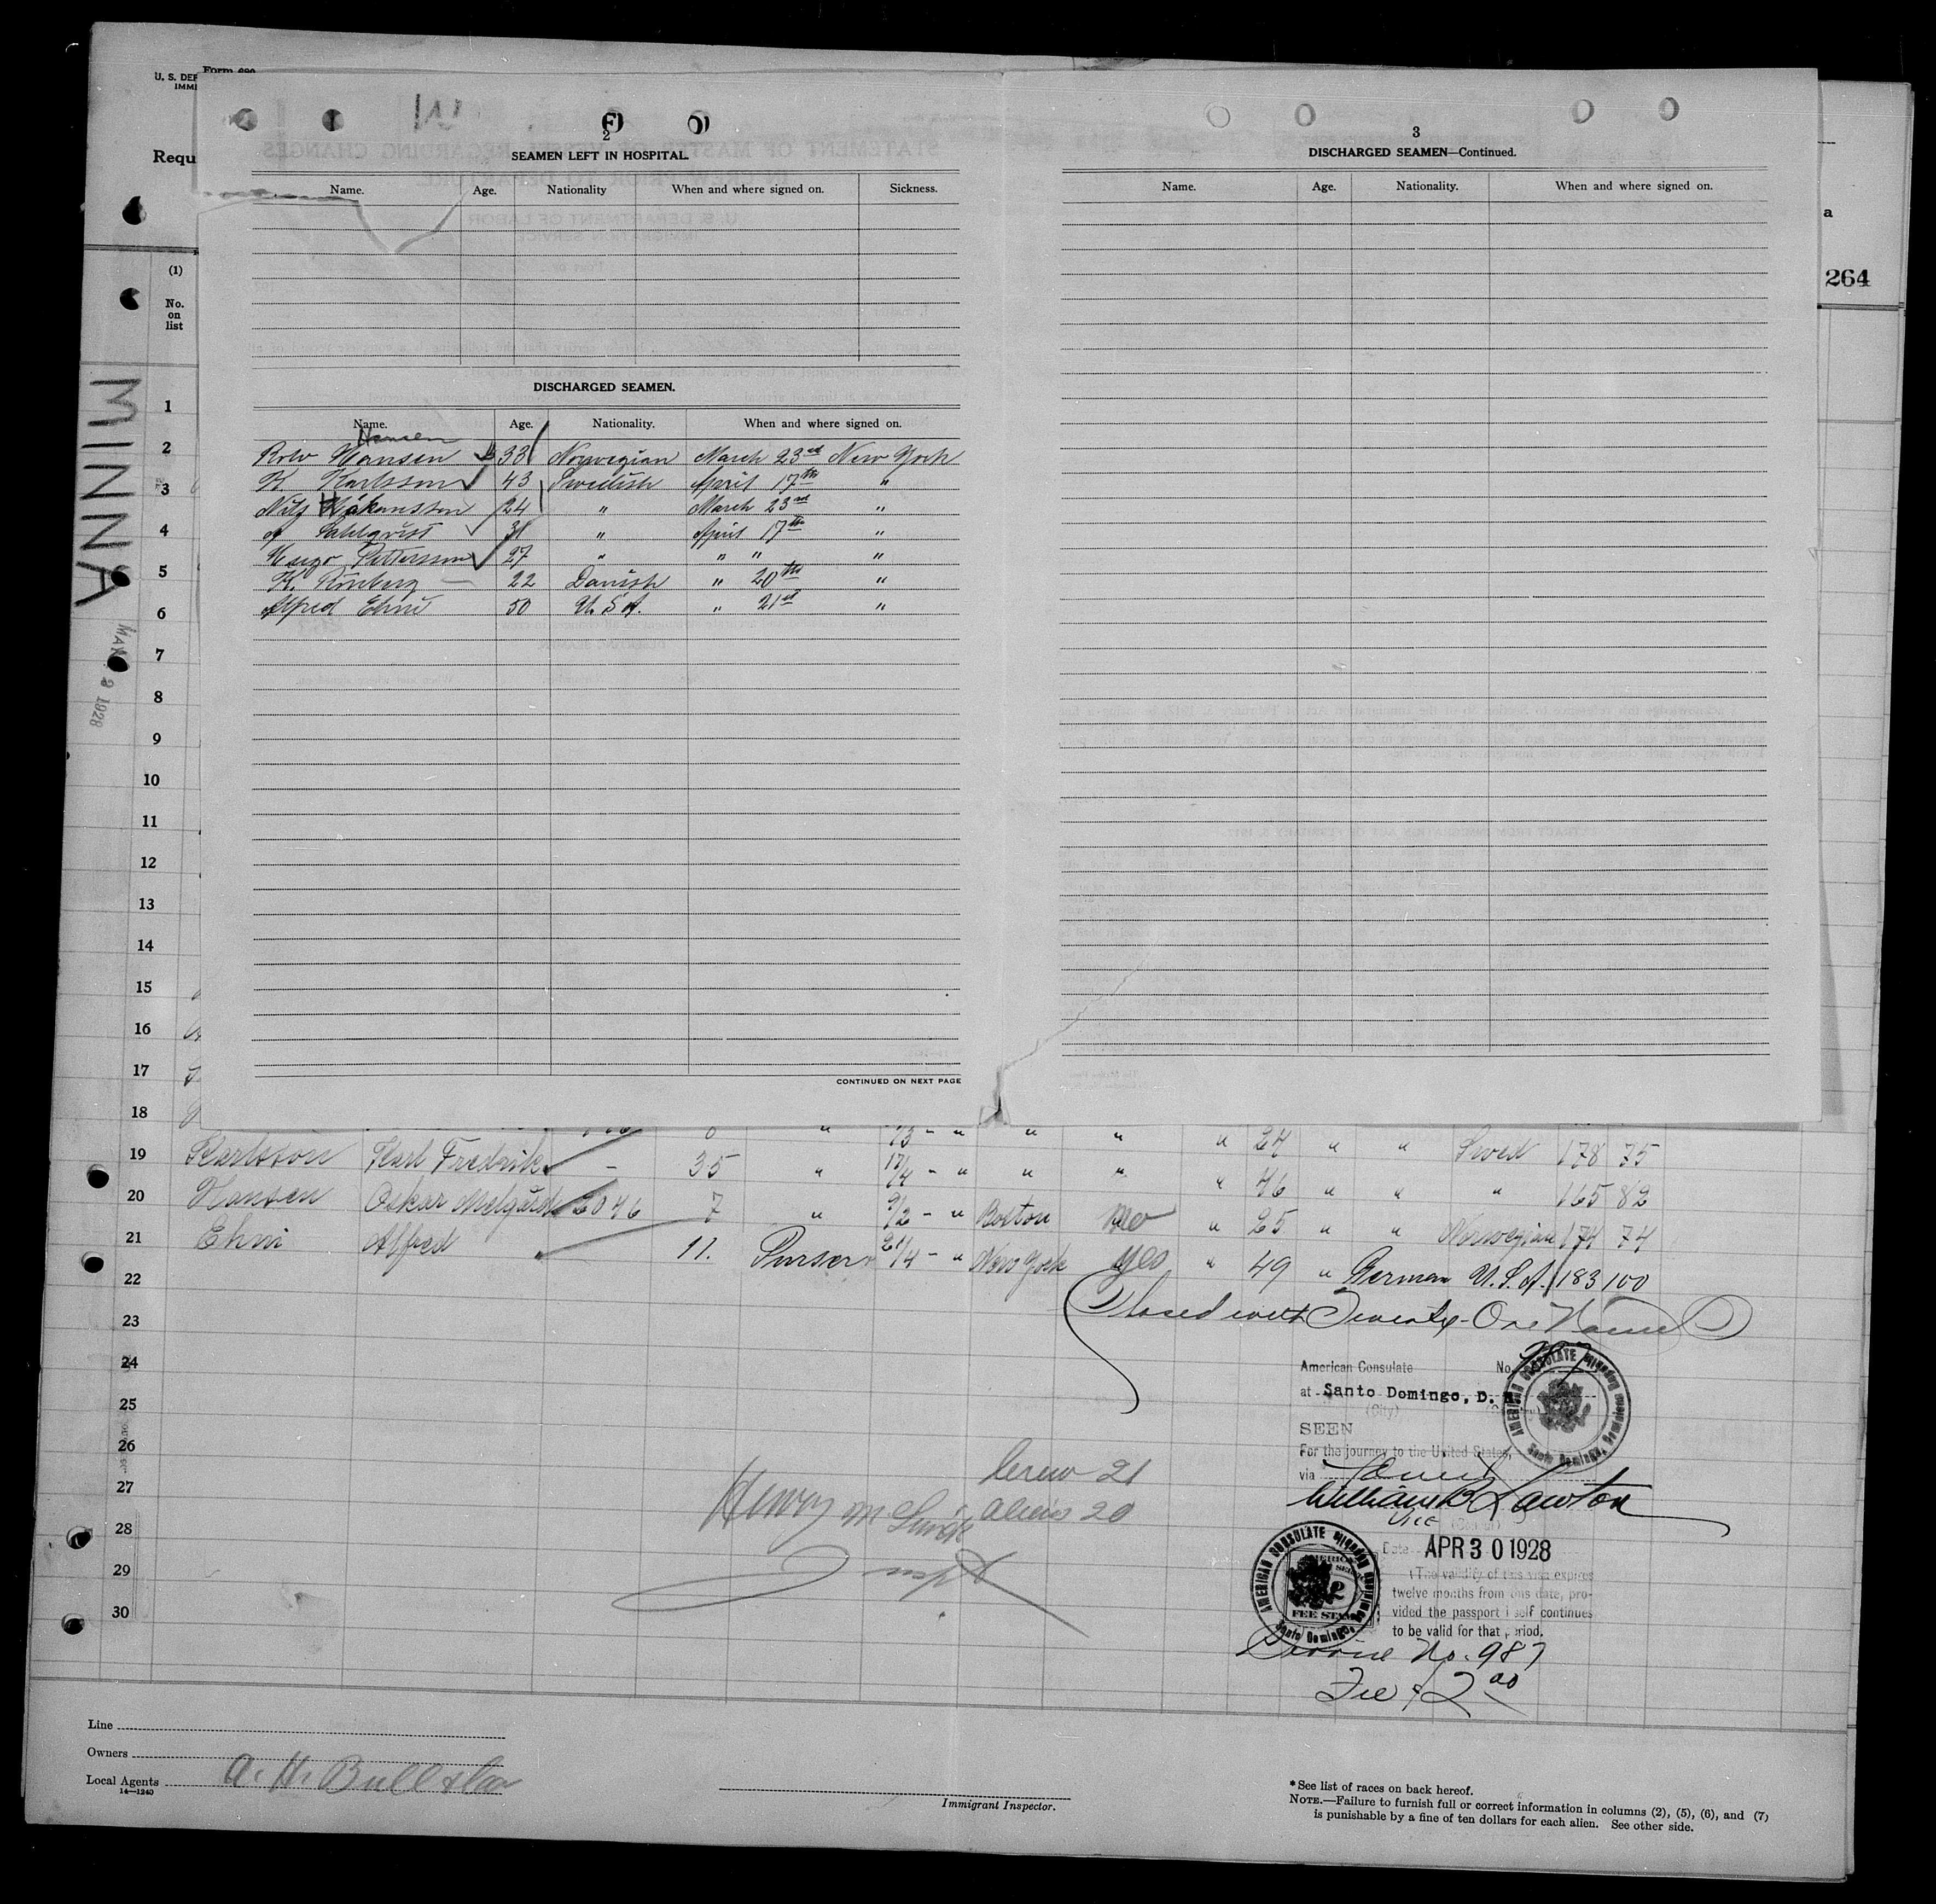 U. S. DEP
IMMI
Form 689
Requ
(1)
No.
on
list
MINNA
2
SEAMEN LEFT IN HOSPITAL.
Name. Age. Nationality When and where signed on. Sickness.
DISCHARGED SEAMEN.
Name. Age. Nationality. When and where signed on.
Hansen
Hansen 33 Norwegian March 23rd New York
K. Karlsson 43 Swedish April 17th "
Nils Håkansson 24 " March 23rd "
Sahlqvist 31 " April 17th "
Hugo Pettersson 27 " " " "
K. 22 Danish " 20th "
Alfred Ehni 50 U. S. A. " 21st "
CONTINUED ON NEXT PAGE
3
DISCHARGED SEAMEN—Continued.
Name. Age. Nationality. When and where signed on.
a
264
1
2
3
4
5
6
7
8
9
10
11
12
13
14
15
16
17
18
" " " " 24 " "  Swed 178 75
19 Karlsson Karl Fredrik - 35 " 17/4 - " " " " 46 " " " 165 82
20 Hansen Oskar Melgård 2046 7 " 9/2 - " Boston no " 25 " " Norwegian 174 74
21 Ehni Alfred 11. Purser 21/4 - " New York yes " 49 " German U.S.A. 183 100
22
Closed with Twenty-One Names
23
24
25
26
27
28
29
30
American Consulate No.
at Santo Domingo, D. R.
(City)
SEEN
For the journey to the United States,
via
William B Lawton
Vice
Date APR 30 1928
(The validity of this visa expires
twelve months from this date, pro-
vided the passport itself continues
to be valid for that period.
AMERICAN CONSULATE
Santo Domingo, Dominican Republic
AMERICAN CONSULATE
Santo Domingo, Dominican Republic
FEE STAMP
Service No. 987
Fee $2.00
Crew 21
Aliens 20
Henry
Insp
Line
Owners
Local Agents A. H. Bull & Co
14—1240
Immigrant Inspector.
*See list of races on back hereof.
NOTE.—Failure to furnish full or correct information in columns (2), (5), (6), and (7)
is punishable by a fine of ten dollars for each alien. See other side.